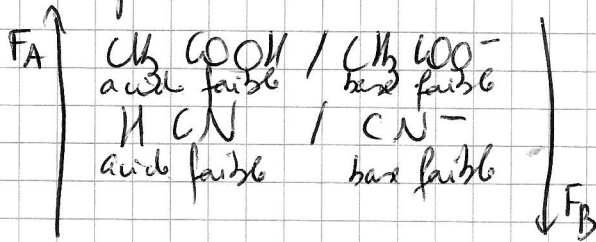 F_A CH₃ COOH / CH₃ COO⁻
acide faible base faible
H CN / CN⁻
acide faible base faible
F_B